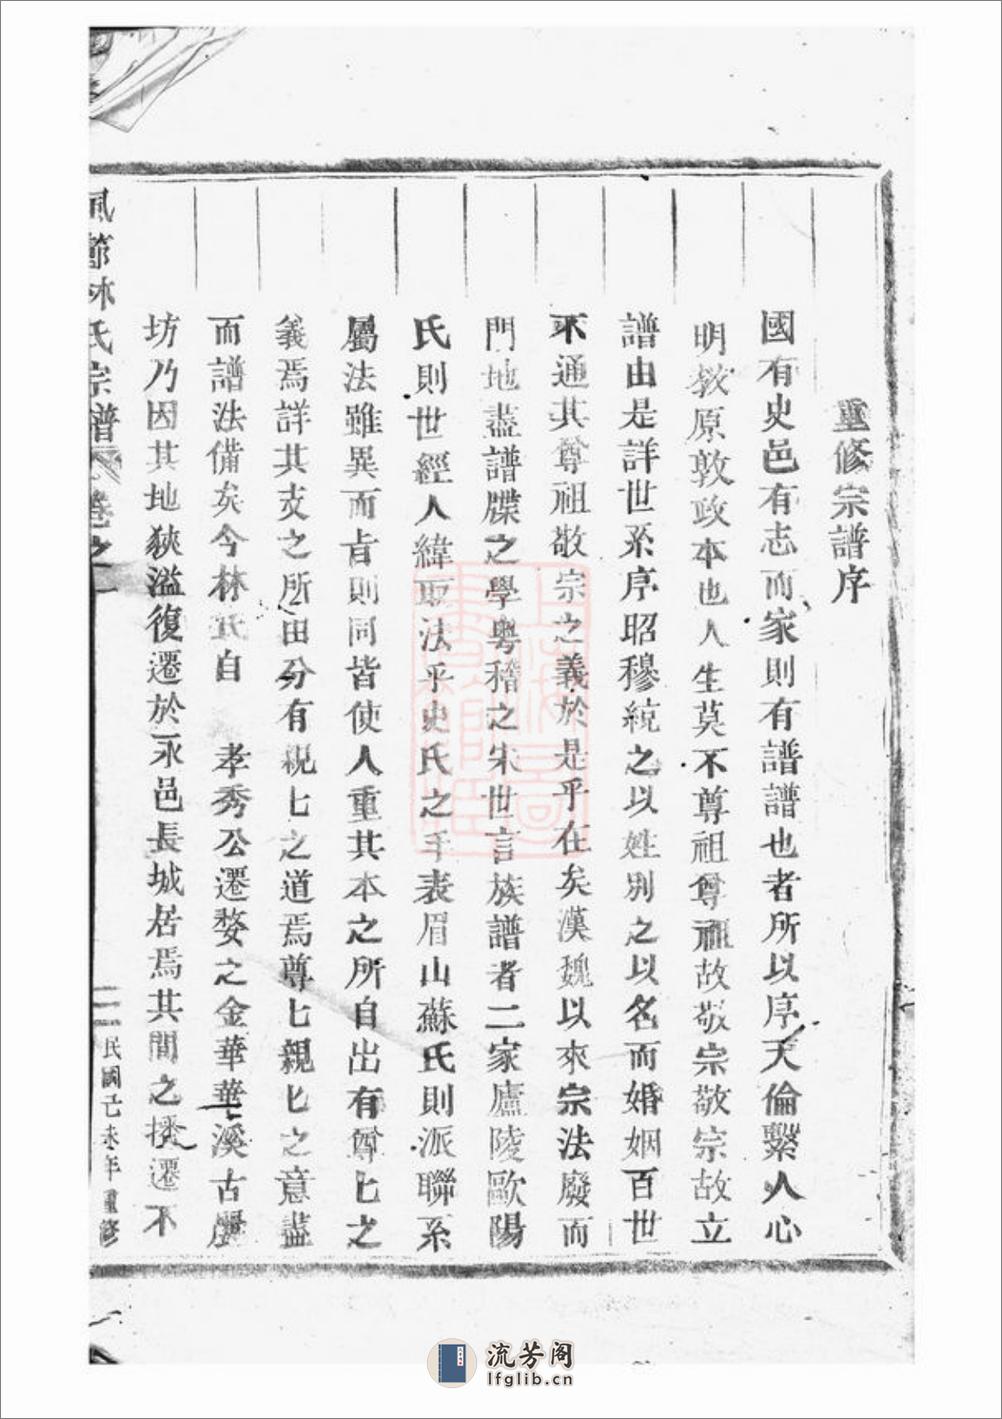 重修宗譜序
國有史邑有志而家則有譜譜也者所以序天倫繫人心
明教原敦政本也人生莫不尊祖尊祖故敬宗敬宗故立
譜由是詳世系序昭穆統之以姓別之以名而婚姻百世
不通其尊祖敬宗之義於是乎在矣漢魏以來宗法廢而
門地盛譜牒之學粵稽之宋世言族譜者二家廬陵歐陽
氏則世經人緯取法乎史氏之年表眉山蘇氏則派聯系
屬法雖異而旨則同皆使人重其本之所自出有尊匕之
義焉詳其支之所由分有親匕之道焉尊匕親匕之意盡
而譜法備矣今林氏自 孝秀公遷婺之金華華溪古
坊乃因其地狹溢復遷於永邑長城居焉其間之播遷不
風節林氏宗譜 卷之一
二 民國己未年重修
上海圖書館藏
流芳阁
lfglib.cn